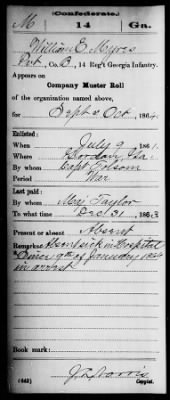 Confederate.
M 14 Ga.
William E. Myres
Pvt, Co. B, 14 Reg't Georgia Infantry.
Appears on
Company Muster Roll
of the organization named above,
for Sept & Oct, 1864.
Enlisted:
When July 9, 1861.
Where Gordon, Ga.
By whom Capt Folsom
Period War
Last paid:
By whom Maj Taylor
To what time Dec 31, 1863.
Present or absent Absent
Remarks: Absent sick in Hospital
Since 9th of January 1864
in arrest
Book mark:
(642) J. L. Norris
Copyist.